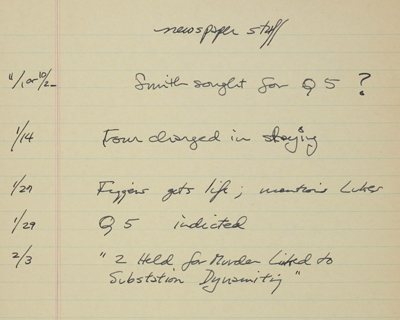 newspaper stuff
11/1 or 10/2 Smith sought for Q 5 ?
1/14 Four charged in slaying
1/27 Figgens gets life; mentions Luker
1/29 Q 5 indicted
2/3 "2 Held for Murder Linked to
Substation Dynamiting"